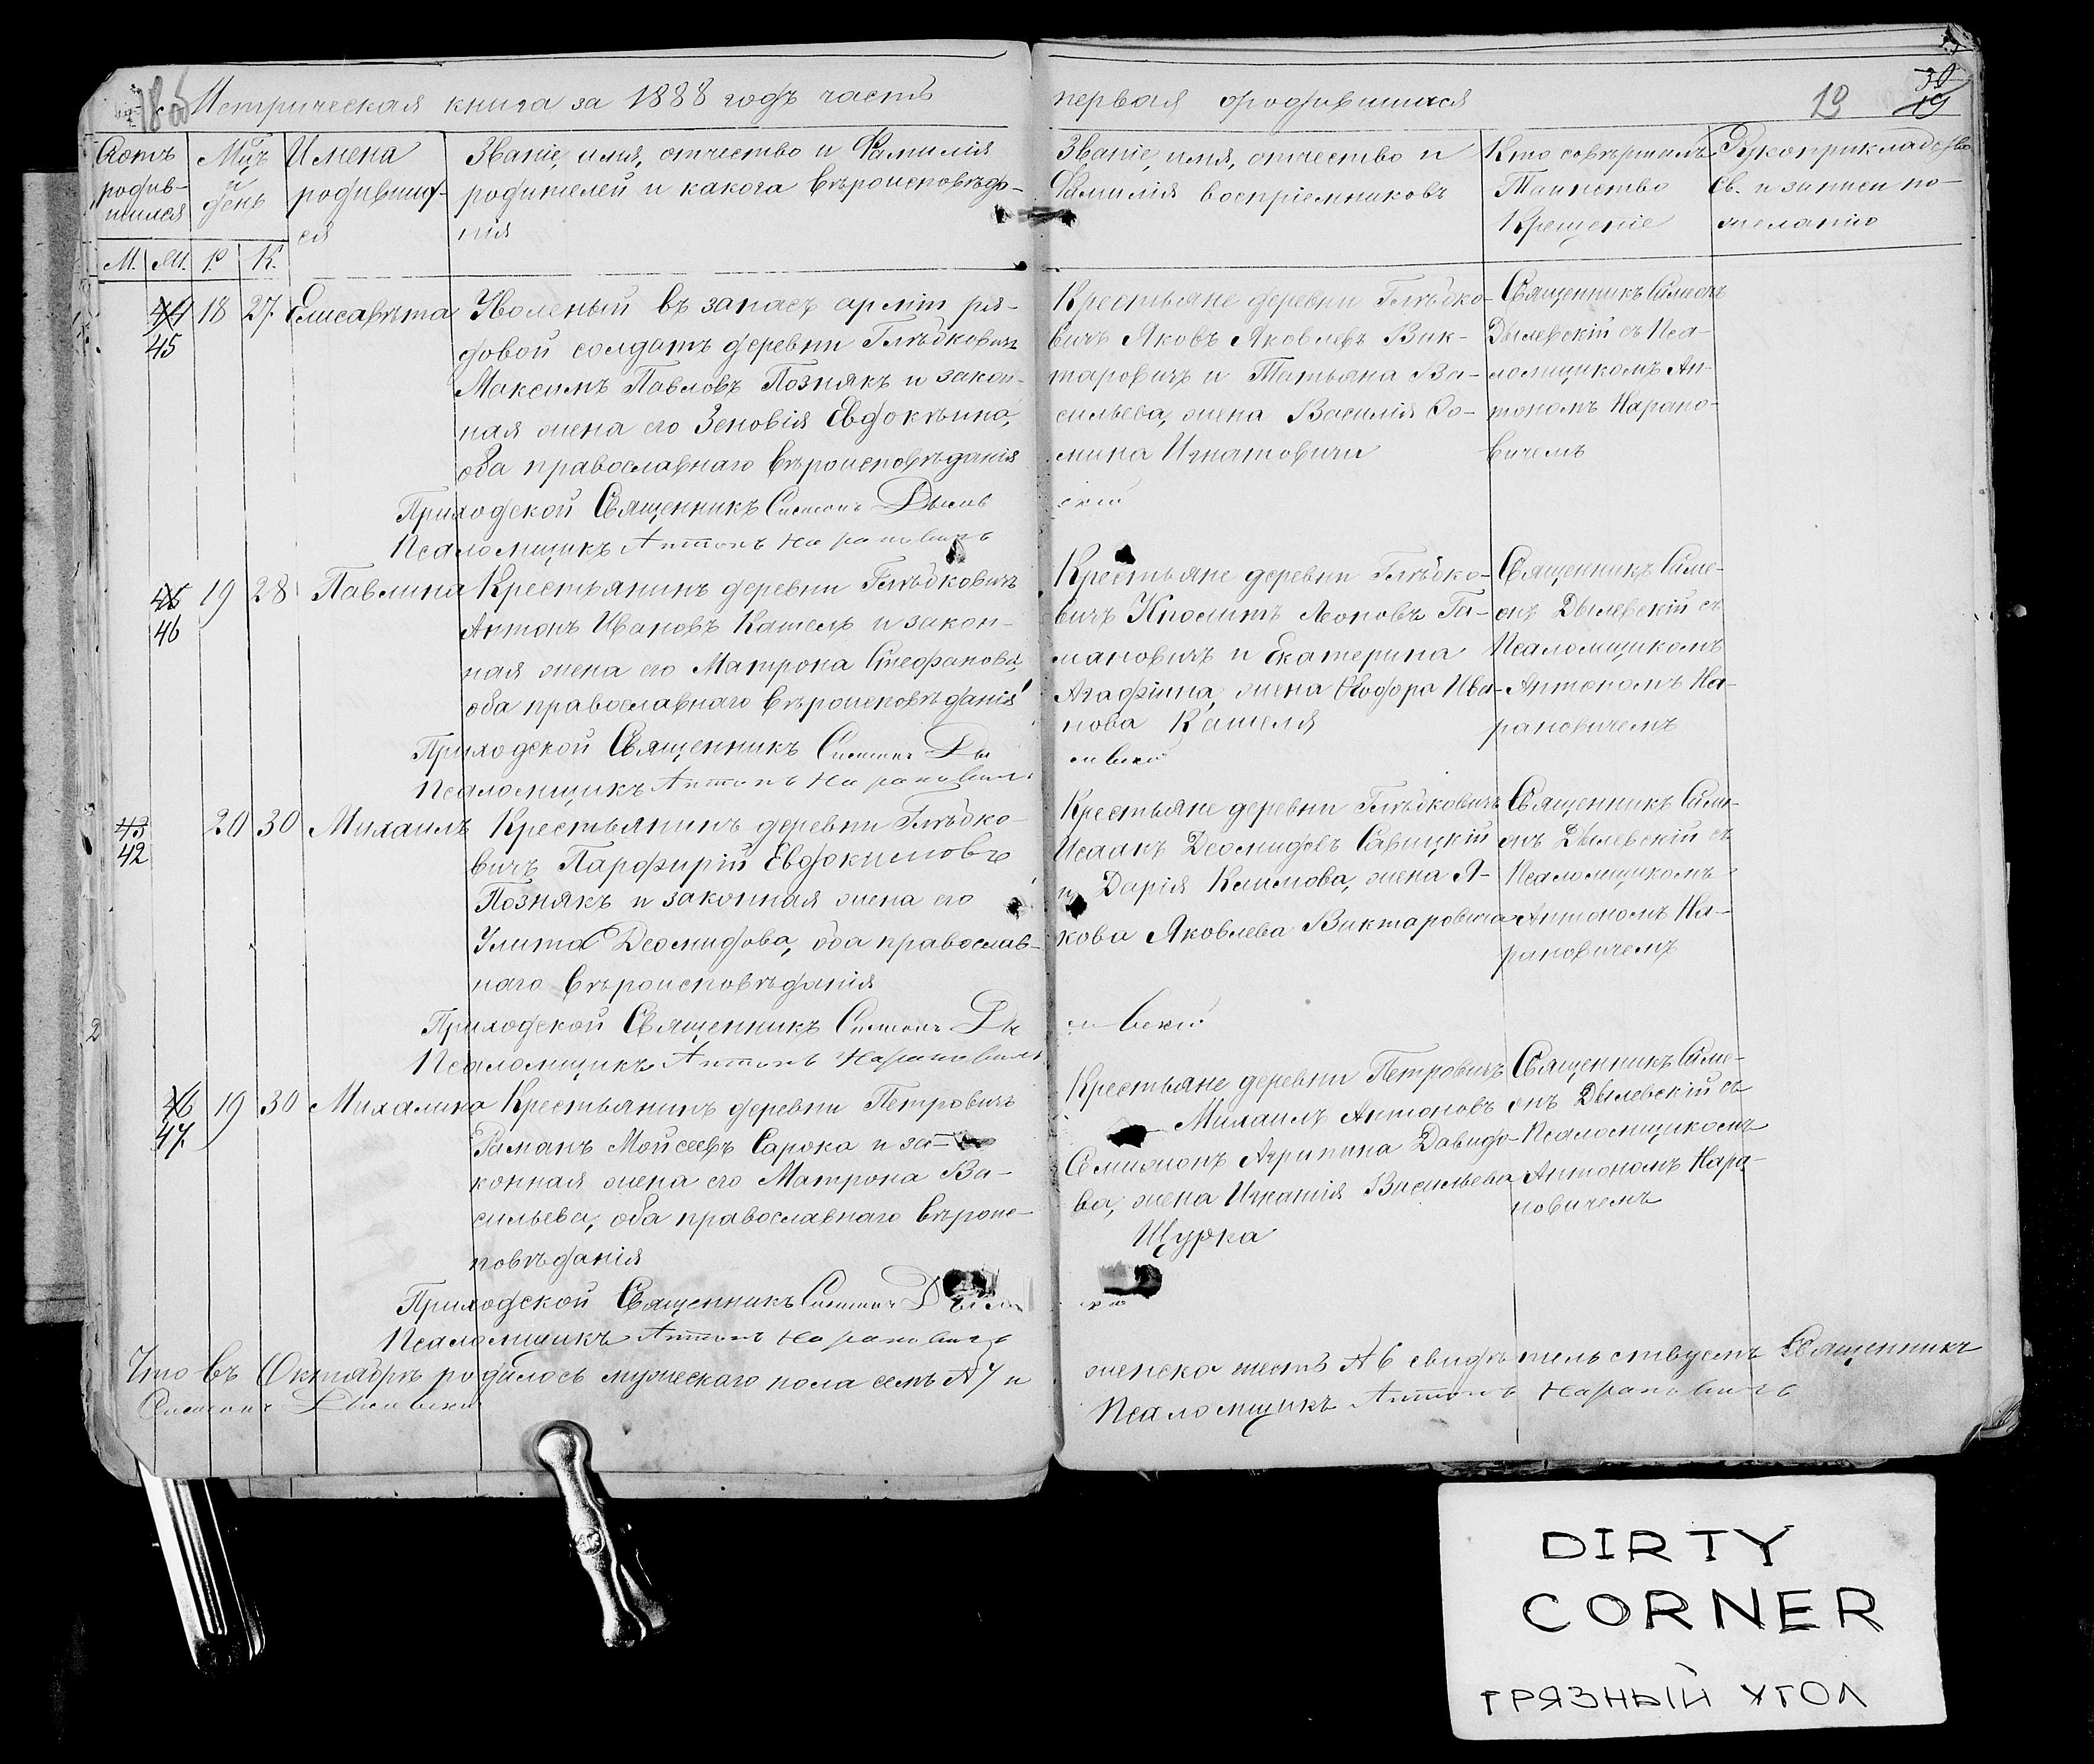 Метрическая книга за 1888 годъ часть
первая о родившихся
19
30
19
Счетъ родив-шихся
Мцъ и день
Имена родивших-ся
Званіе, имя, отчество и Фамилія
родителей и какога вѣроисповѣда-
нія
Званіе, имя, отчество и
Фамилія воспріемниковъ
Кто совершалъ
Таинство
Крещеніе
Рукоприкладство
св. и записи по-
желанію
М. М. Р. К.
44
45
18 27 Елисавѣта
Уволеный въ запасъ арміи ря-
довой солдатъ деревни Глѣбковичъ
Максимъ Павловъ Познякъ и закон-
ная жена его Зеновія Евдокѣина,
оба православнаго вѣроисповѣданія
Приходской Священникъ Симеонъ Дылев
ский
Псаломщикъ Антонъ Наранович
Крестьяне деревни Глѣбко-
вичъ Яковъ Яковлевъ Вик-
таровичъ и Татьяна Ва-
сильева, жена Василія Фо-
мина Игнатовича
Священникъ Симеонъ
Дылевскій съ Пса-
ломщикомъ Ан-
тономъ Нарано-
вичемъ
45
46
19 28 Павлина
Крестьянинъ деревни Глѣбковичъ
Антонъ Ивановъ Кашель и закон-
ная жена его Матрона Стефанова,
оба православнаго вѣроисповѣданія
Приходской Священникъ Симеонъ Ды
левский
Псаломщикъ Антонъ Наранович
Крестьяне деревни Глѣбко-
вичъ Иполитъ Леоновъ Га-
мановичъ и Екатерина
Агафіина, жена Фодора Ива-
нова Кашеля
Священникъ Симе-
онъ Дылевскій съ
Псаломщикомъ
Антономъ На-
рановичемъ
43
42
20 30 Михаилъ
Крестьянинъ деревни Глѣбко-
вичъ Парфирій Евдокимовъ
Познякъ и законная жена его
Улита Деомидова, оба православ-
наго вѣроисповѣданія
Приходской Священникъ Симеонъ Ды
левский
Псаломщикъ Антонъ Наранович
Крестьяне деревни Глѣбковичъ
Исаакъ Деомидовъ Савицкій
и Дарія Климова, жена Я-
кова Яковлева Виктаровича
Священникъ Симе-
онъ Дылевскій съ
Псаломщикомъ
Антономъ На-
рановичемъ
46
47.
19 30 Михалина
Крестьянинъ деревни Петровичъ
Раманъ Мойсеевъ Сарока и за-
конная жена его Матрона Ва-
сильева, оба православнаго вѣроис-
повѣданія
Приходской Священникъ Симеонъ Дылев
Псаломщикъ Антонъ Наранович
Крестьяне деревни Петровичъ
Михаилъ Антоновъ
Агрипина Давидо-
ва, жена Игнатія Васильева
Щурка
Священникъ Симе-
онъ Дылевскій съ
Псаломщикомъ
Антономъ Нара-
новичемъ
Что въ Октябрѣ родилось мужескаго пола семь №7 и
женска шесть №6 свидѣтельствуемъ Священникъ
Симеонъ Дылевский
Псаломщикъ Антонъ Наранович
DIRTY
CORNER
ГРЯЗНЫЙ УГОЛ